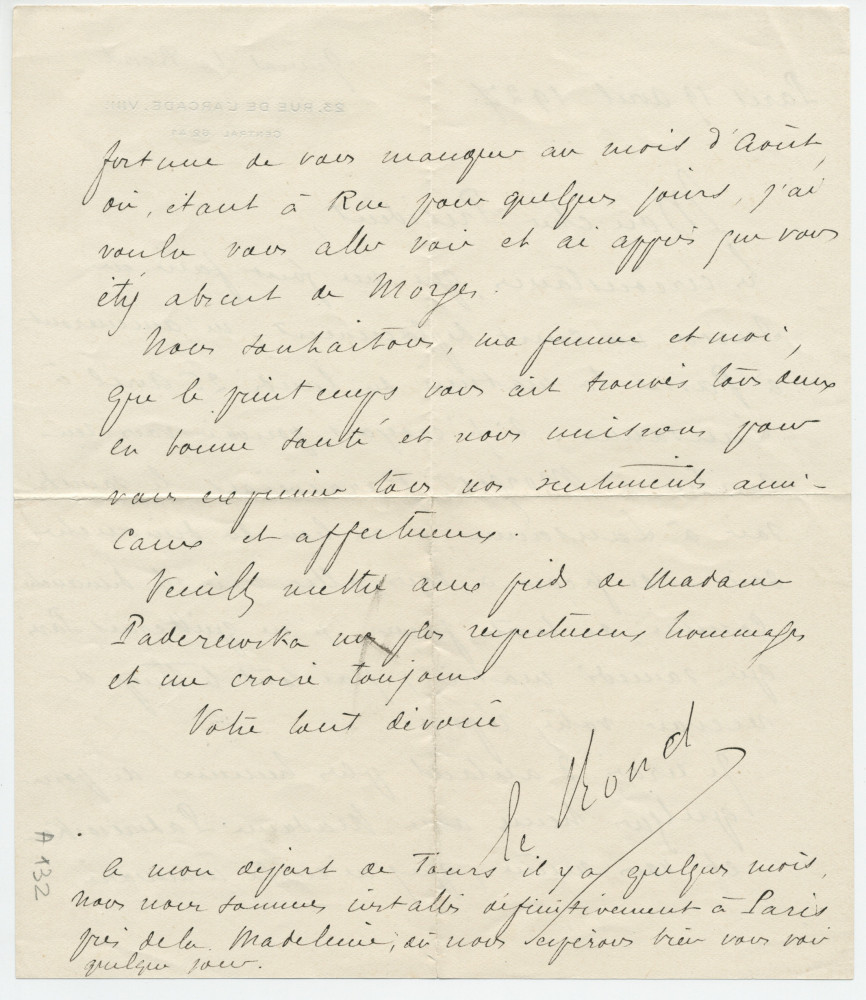 fortune de vous manquer au mois d'Août,
où, étant à Rue pour quelques jours, j'ai
voulu vous aller voir et ai appris que vous
étiez absent de Morges.
Nous souhaitons, ma femme et moi,
que le printemps vous ait trouvés tous deux
en bonne santé et nous unissons pour
vous exprimer tous nos sentiments ami-
caux et affectueux.
Veuillez mettre aux pieds de Madame
Paderewska mes plus respectueux hommages
et me croire toujours
Votre tout dévoué
le Rond
A mon départ de Tours il y a quelques mois,
nous nous sommes installés définitivement à Paris
près de la Madeleine, où nous espérons bien vous voir
quelque jour.
A 132
23, RUE DE L'ARCADE, VIIIe
Paris 17 avril 1927